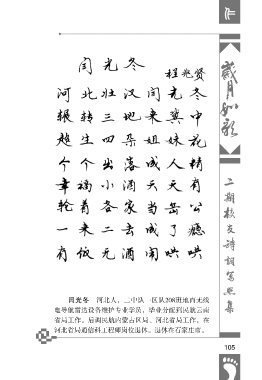 作
岁月如歌
二期校友诗词写照集
闫光冬
程兆贤
河北壮汉闫光冬
辗转三地来冀中
越生四朵姐妹花
个个出落成人精
幸福小酒天天有
轮着各家当岳公
一来二去成了瘾
有饭无酒闹哄哄
闫光冬 河北人，二中队一区队208班地面无线
电导航雷达设备维护专业学员，毕业分配到民航云南
省局工作，后调民航内蒙古区局、河北省局工作，在
河北省局通信科工程师岗位退休。退休在石家庄市。
105